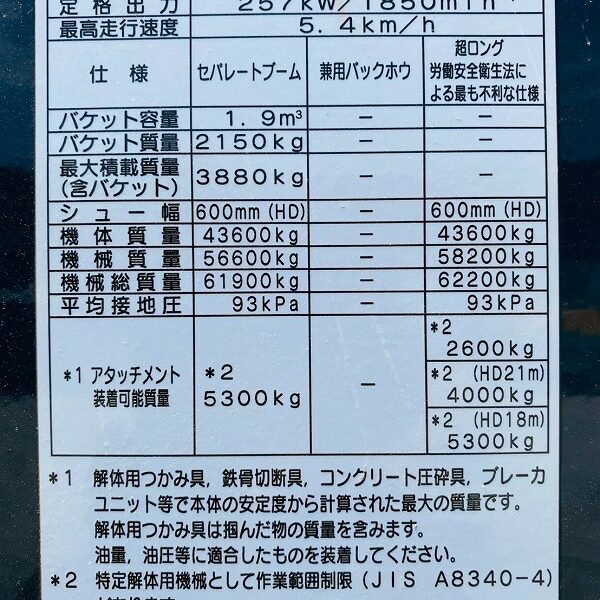 定格出力 257kW/1850min⁻¹
最高走行速度 5.4km/h
仕様 セパレートブーム 兼用バックホウ 超ロング
労働安全衛生法に
よる最も不利な仕様
バケット容量 1.9m³ － －
バケット質量 2150kg － －
最大積載質量
(含バケット) 3880kg － －
シュー幅 600mm(HD) － 600mm(HD)
機体質量 43600kg － 43600kg
機械質量 56600kg － 58200kg
機械総質量 61900kg － 62200kg
平均接地圧 93kPa － 93kPa
*1 アタッチメント
装着可能質量
*2
5300kg
－
*2
2600kg
*2 (HD21m)
4000kg
*2 (HD18m)
5300kg
*1 解体用つかみ具，鉄骨切断具，コンクリート圧砕具，ブレーカ
ユニット等で本体の安定度から計算された最大の質量です。
解体用つかみ具は掴んだ物の質量を含みます。
油量，油圧等に適合したものを装着してください。
*2 特定解体用機械として作業範囲制限(JIS A8340-4)